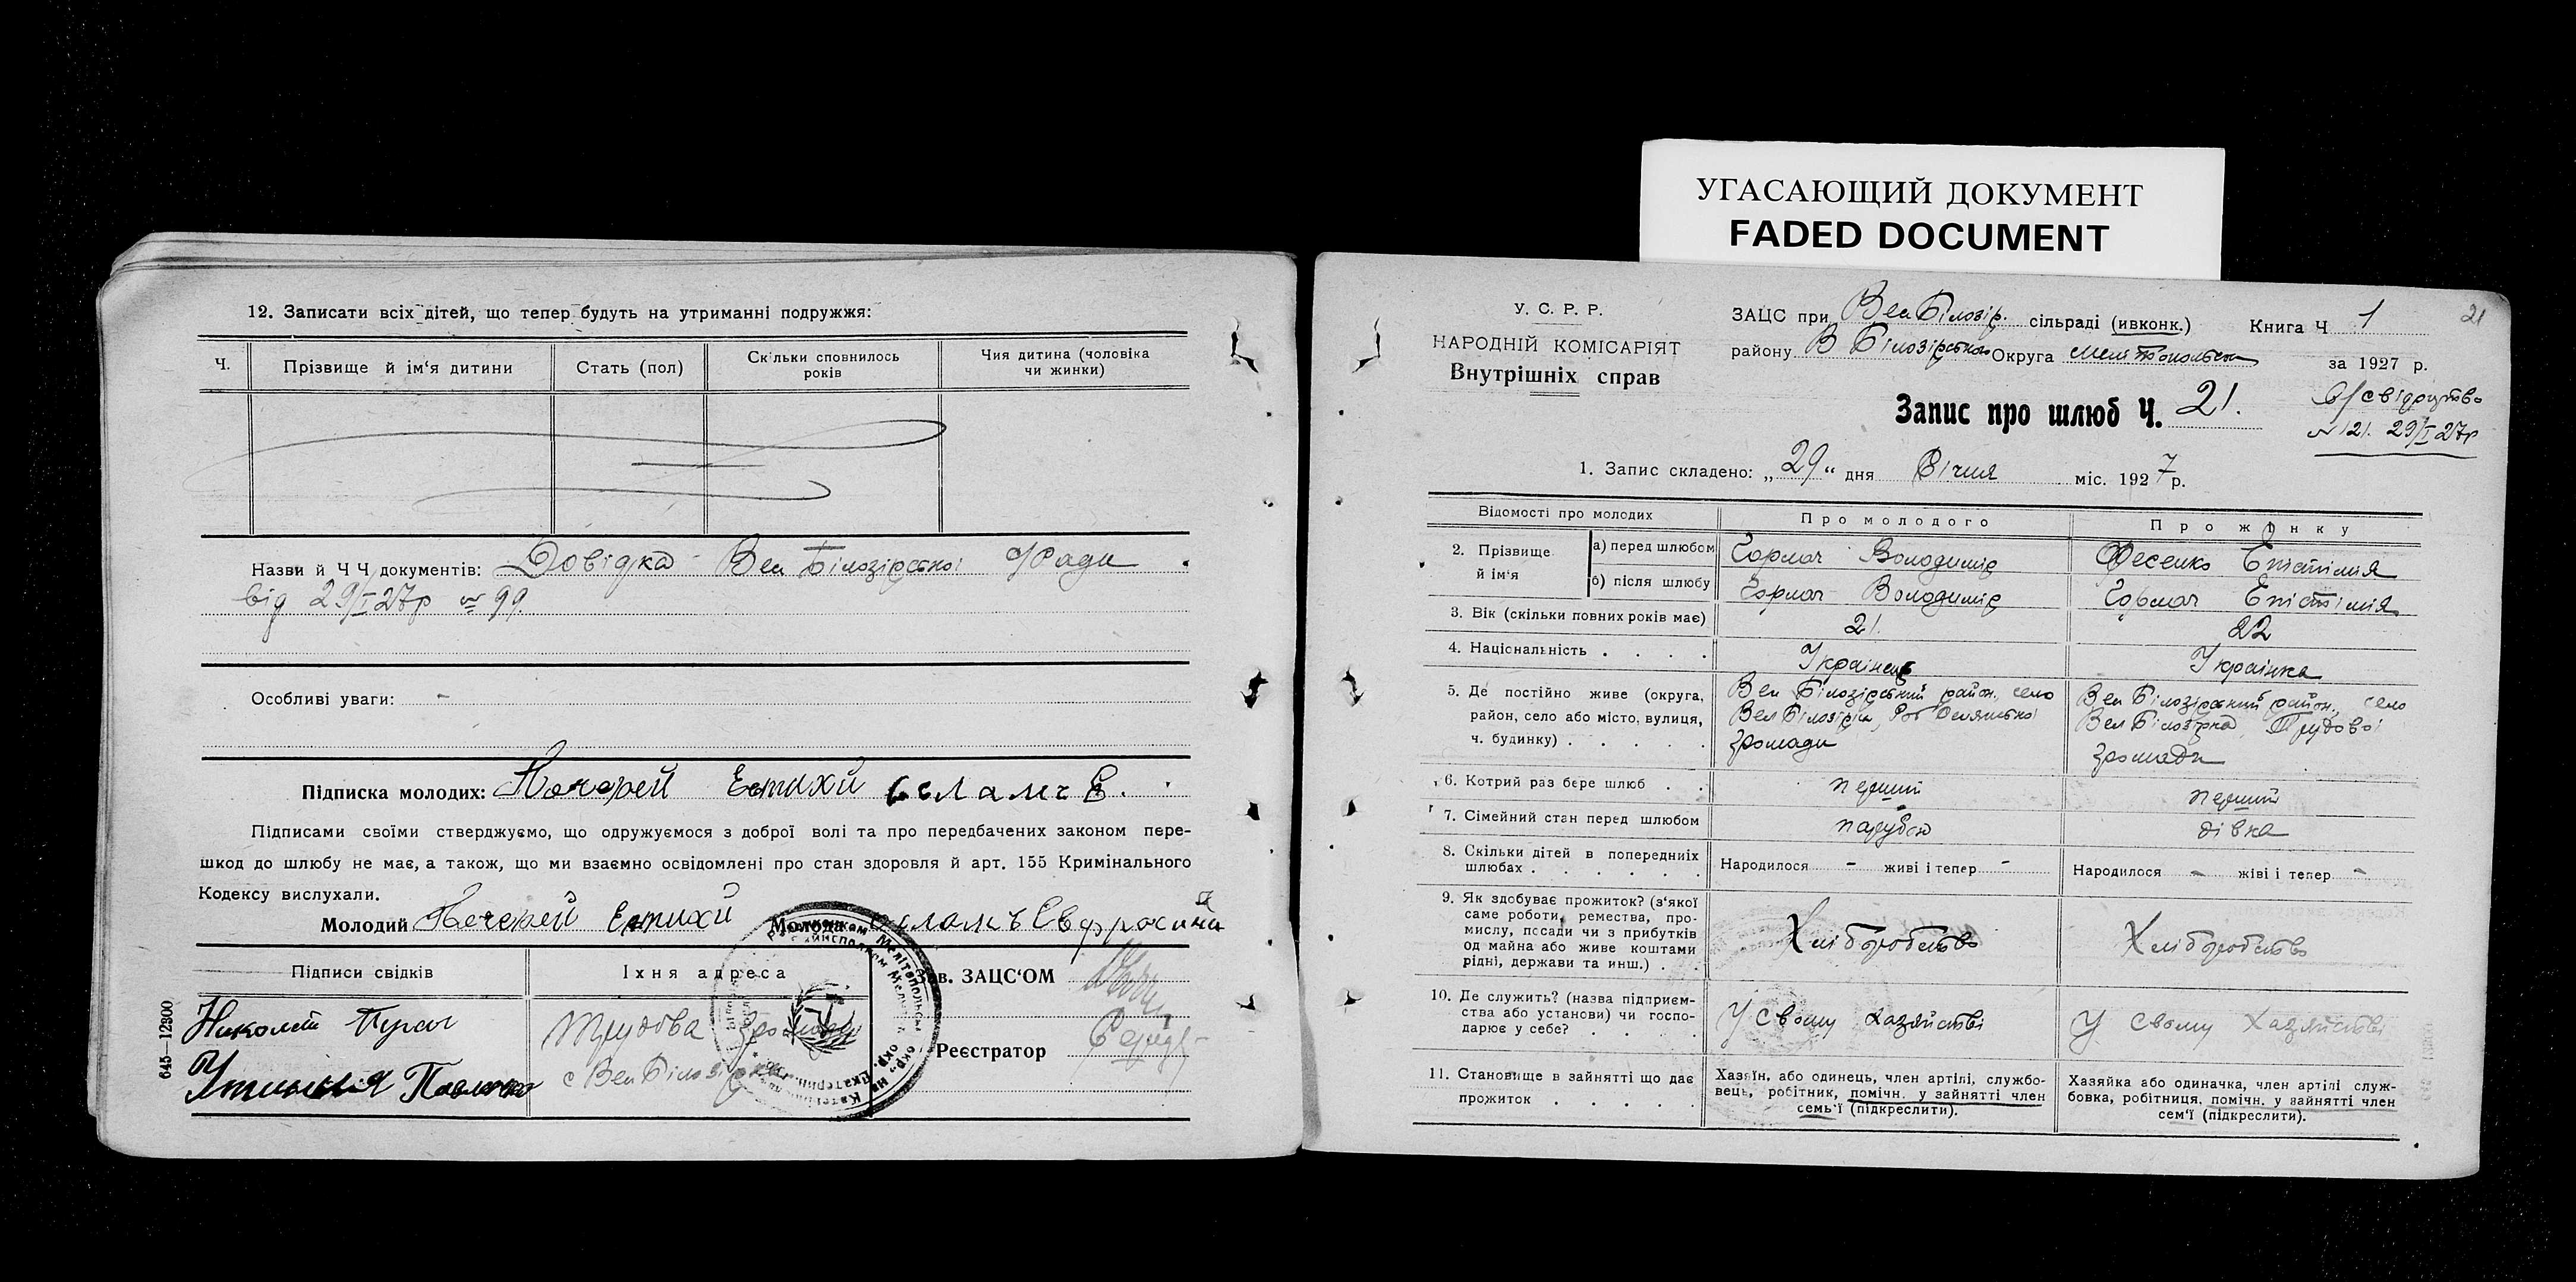 УГАСАЮЩИЙ ДОКУМЕНТ
FADED DOCUMENT
12. Записати всіх дітей, що тепер будуть на утриманні подружжя:
Ч. Прізвище й ім‘я дитини Стать (пол) Скільки сповнилось років Чия дитина (чоловіка чи жинки)
Назви й Ч Ч документів: Довідка Вел Білозірської с/Ради
від 29/I 27р № 99.
Особливі уваги: -
Підписка молодих: Печерей Евтихй
Підписами своїми стверджуємо, що одружуємося з доброї волі та про передбачених законом пере-
шкод до шлюбу не має, а також, що ми взаємно освідомлені про стан здоровля й арт. 155 Кримінального
Кодексу вислухали.
Молодий Печерей Евтихй Молода Евфросиния
Підписи свідків Їхня адреса Зав. ЗАЦС‘ОМ
Николай Трудова громада
с Вел Білозірка Реєстратор
645—12300
21
У. С. Р. Р.
НАРОДНІЙ КОМІСАРІЯТ
Внутрішніх справ
ЗАЦС при Вел Білозір. сільраді (ивконк.) Книга Ч 1
району В Білозірського Округа Мелітопольська за 1927 р.
Запис про шлюб Ч. 21.
свідоцтво
№ 121. 29/I 27р
1. Запис складено: „29“ дня Січня міс. 1927 р.
Відомості про молодих Про молодого Про жінку
2. Прізвище й ім‘я
а) перед шлюбом Гормач Володимір Фесенко Епістімія
б) після шлюбу Гормач Володимір Гормач Епістімія
3. Вік (скільки повних років має) 21. 22
4. Національність . . . . Українец Українка
5. Де постійно живе (округа, район, село або місто, вулиця, ч. будинку) . . . . .
Вел Білозірський район, село
Вел Білозірка, Роб Селянської
громади
Вел Білозірський район, село
Вел Білозірка, Трудової
громади
6. Котрий раз бере шлюб . . перший перший
7. Сімейний стан перед шлюбом парубок дівка
8. Скільки дітей в попередниіх шлюбах . . . . . . Народилося - живі і тепер - Народилося - жіві і тепер -
9. Як здобуває прожиток? (з‘якої
саме роботи, ремества, про-
мислу, посади чи з прибутків
од майна або живе коштами
рідні, держави та инш.) . .
Хліборобство Хліборобство
10. Де служить? (назва підприєм-
ства або установи) чи госпо-
дарює у себе? . . . .
У свому хазяйстві У свому хазяйстві
11. Становище в зайнятті що дає
прожиток . . . . .
Хазяїн, або одинець, член артілі, службо-
вець, робітник, помічн. у зайнятті член
семь‘ї (підкреслити).
Хазяйка або одиначка, член артілі служ-
бовка, робітниця, помічн. у зайнятті член
сем‘ї (підкреслити).